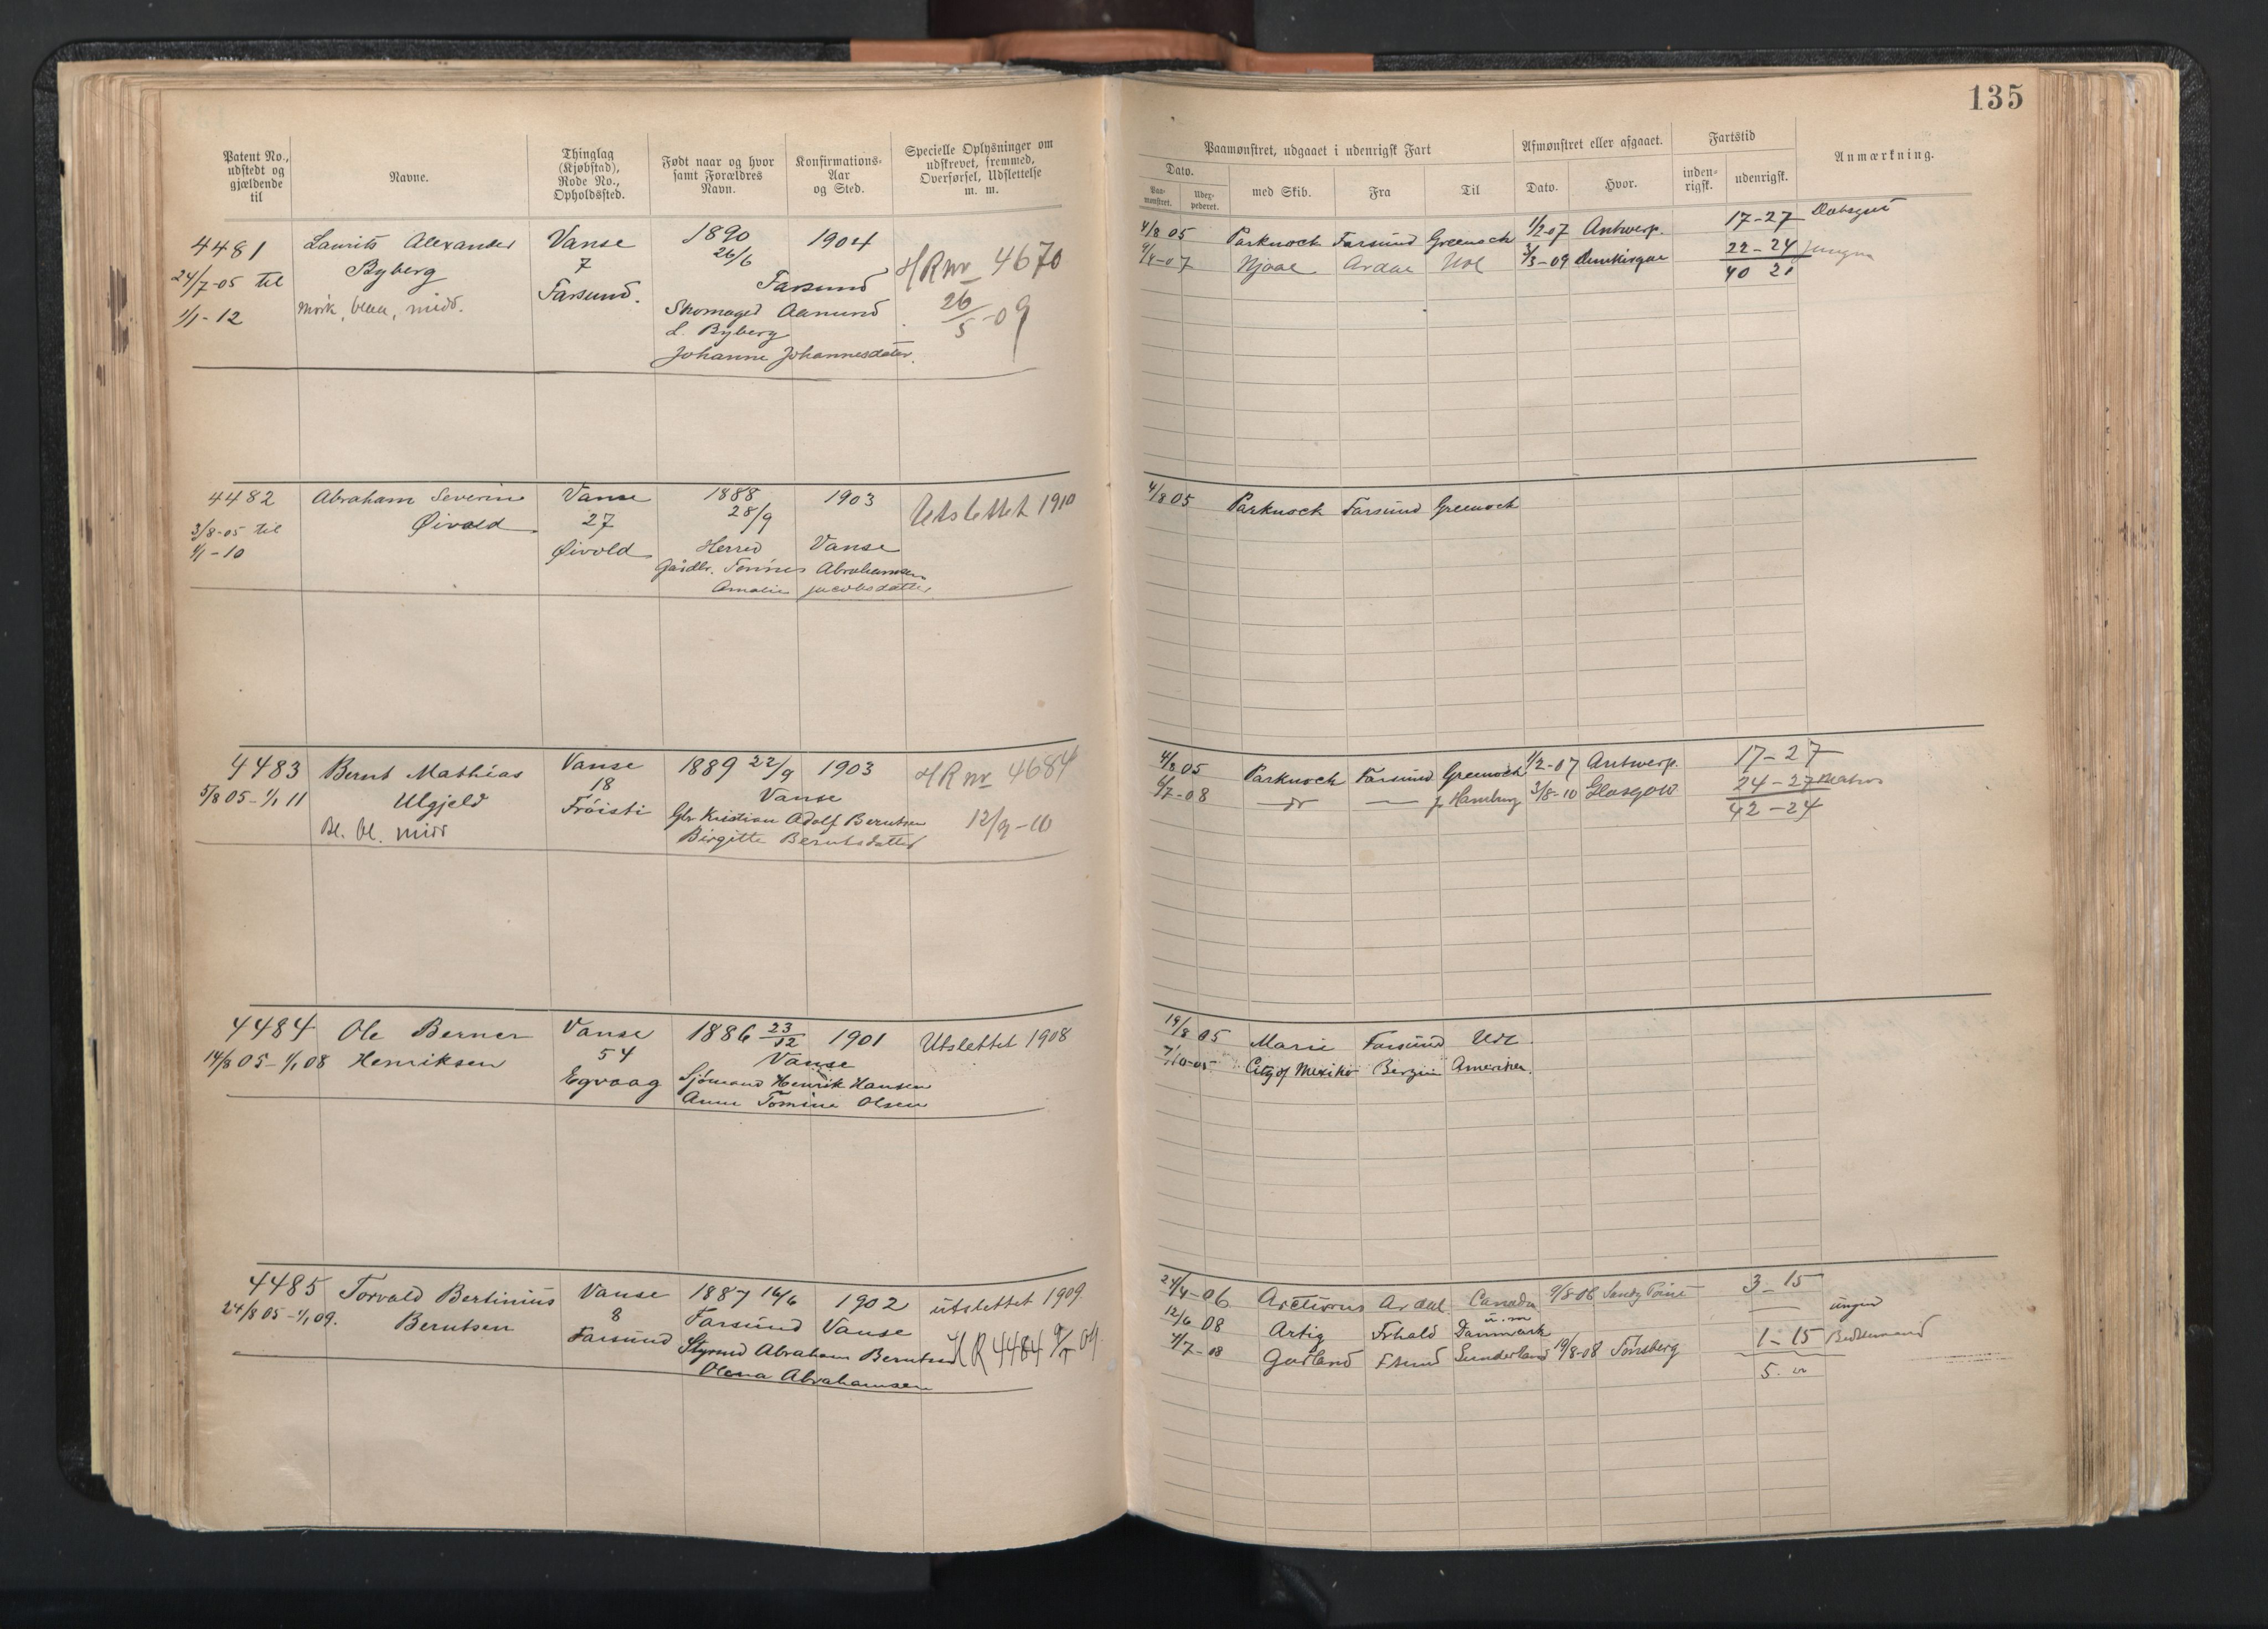 135
Patent No., udstedt og gjældende til
Navne.
Thinglag (Kjøbstad), Rode No., Opholdssted.
Født naar og hvor samt Forældres Navn.
Konfirmations-Aar og Sted.
Specielle Oplysninger om udskrevet, fremmed, Overførsel, Udslettelse m. m.
Paamønstret, udgaaet i udenrigsk Fart
Dato.
Paa-mønstret.
Udex-pederet.
med Skib.
Fra
Til
Afmønstret eller afgaaet.
Dato.
Hvor.
Fartstid
inden-rigsk.
udenrigsk.
Anmærkning.
4481 Laurits Alexander Vanse 1890 1904
24/7-05 til Byberg 7 26/6 HRnr 4670
1/1-12 Mørk, blaa, midd. Farsund. Farsund 26/5-09
Skomager Aamund
L. Byberg
Johanne Johannesdatter.
4/8 05 Parknock Farsund Greenock 1/2-07 Antwerp. 17-27
9/4-07 Njaal Ardal Udl 3/3-09 22-24
40 21
4482 Abraham Severin Vanse 1888 1903 Utslettet 1910
3/8-05 til Øivold 27 28/9
1/1-10 Øivold Herred Vanse
Gaardbr. Tønnes Abrahamsen
Amalie Jacobsdatter
4/8 05 Parknock Farsund Greenock
4483 Bernt Mathias Vanse 1889 22/9 1903 HRnr 4684
5/8 05-1/1 11 Ulgjeld 18 Vanse
Bl. bl. midd Frøisti Gbr Kristian Adolf Berntsen 12/9-10
Birgitte Berntsdatter
4/8 05 Parknock Farsund Greenock 1/2-07 Antwerp. 17-27
6/7-08 — Hamburg 3/8-10 Glasgow 24-27 Matros
42-24
4484 Ole Berner Vanse 1886 23/12 1901 Utslettet 1908
14/8 05-1/1 08 Henriksen 54 Vanse
Egvaag Sjømand Henrik Hansen
Anne Tomine Olsen
19/8 05 Marie Farsund Udl.
7/10-05 City of Mexiko Bergen Amerika.
4485 Torvald Bertinius Vanse 1887 16/6 1902 utslettet 1909
24/8 05-1/1 09. Berntsen 8 Farsund Vanse
Farsund Styrmd Abraham Berntsen HR 4484
Olena Abrahamsen
24/4-06 Arcturus Ardal Canada 9/8-06 Sandy Point 3-15
12/6 08 Artig Frhald Danmark u. m
4/7-08 Gotland Fsund Sunderland 19/8-08 Tønsberg 1-15
5. "